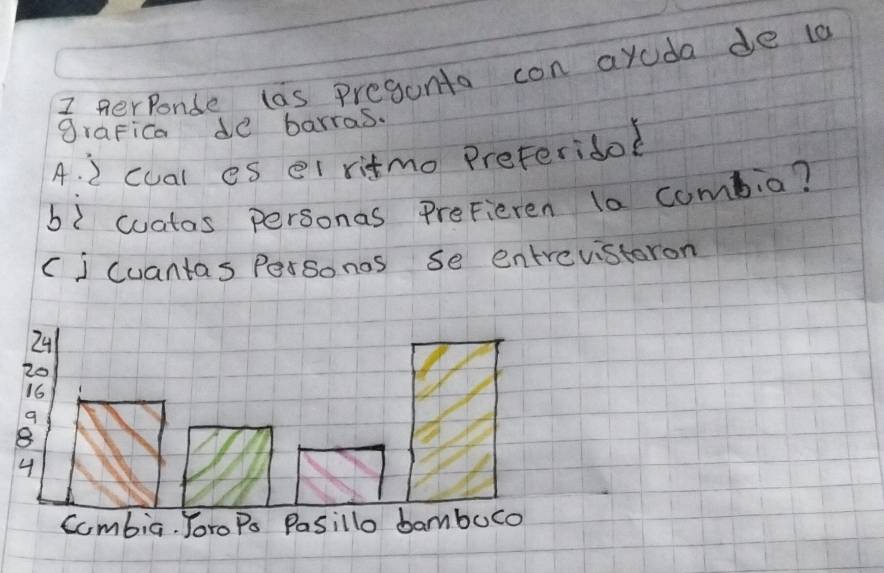 I Rerponde las Pregunta con ayuda de la
grafica de barras.
A.¿ cual es el ritmo Preferido?
b¿ cuatas personas Prefieren la cumbia?
c¿ cuantas Personas se entrevistaron
24
20
16
9
8
4
Cumbia. Joropo Pasillo bambuco